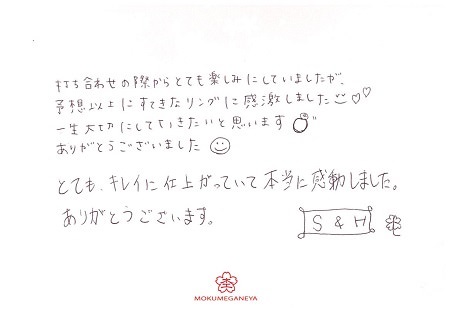 打ち合わせの際からとても楽しみにしていましたが、
予想以上にすてきなリングに感激しました
一生大切にしていきたいと思います
ありがとうございました
とても、キレイに仕上がっていて本当に感動しました。
ありがとうございます。
S & H
MOKUMEGANEYA